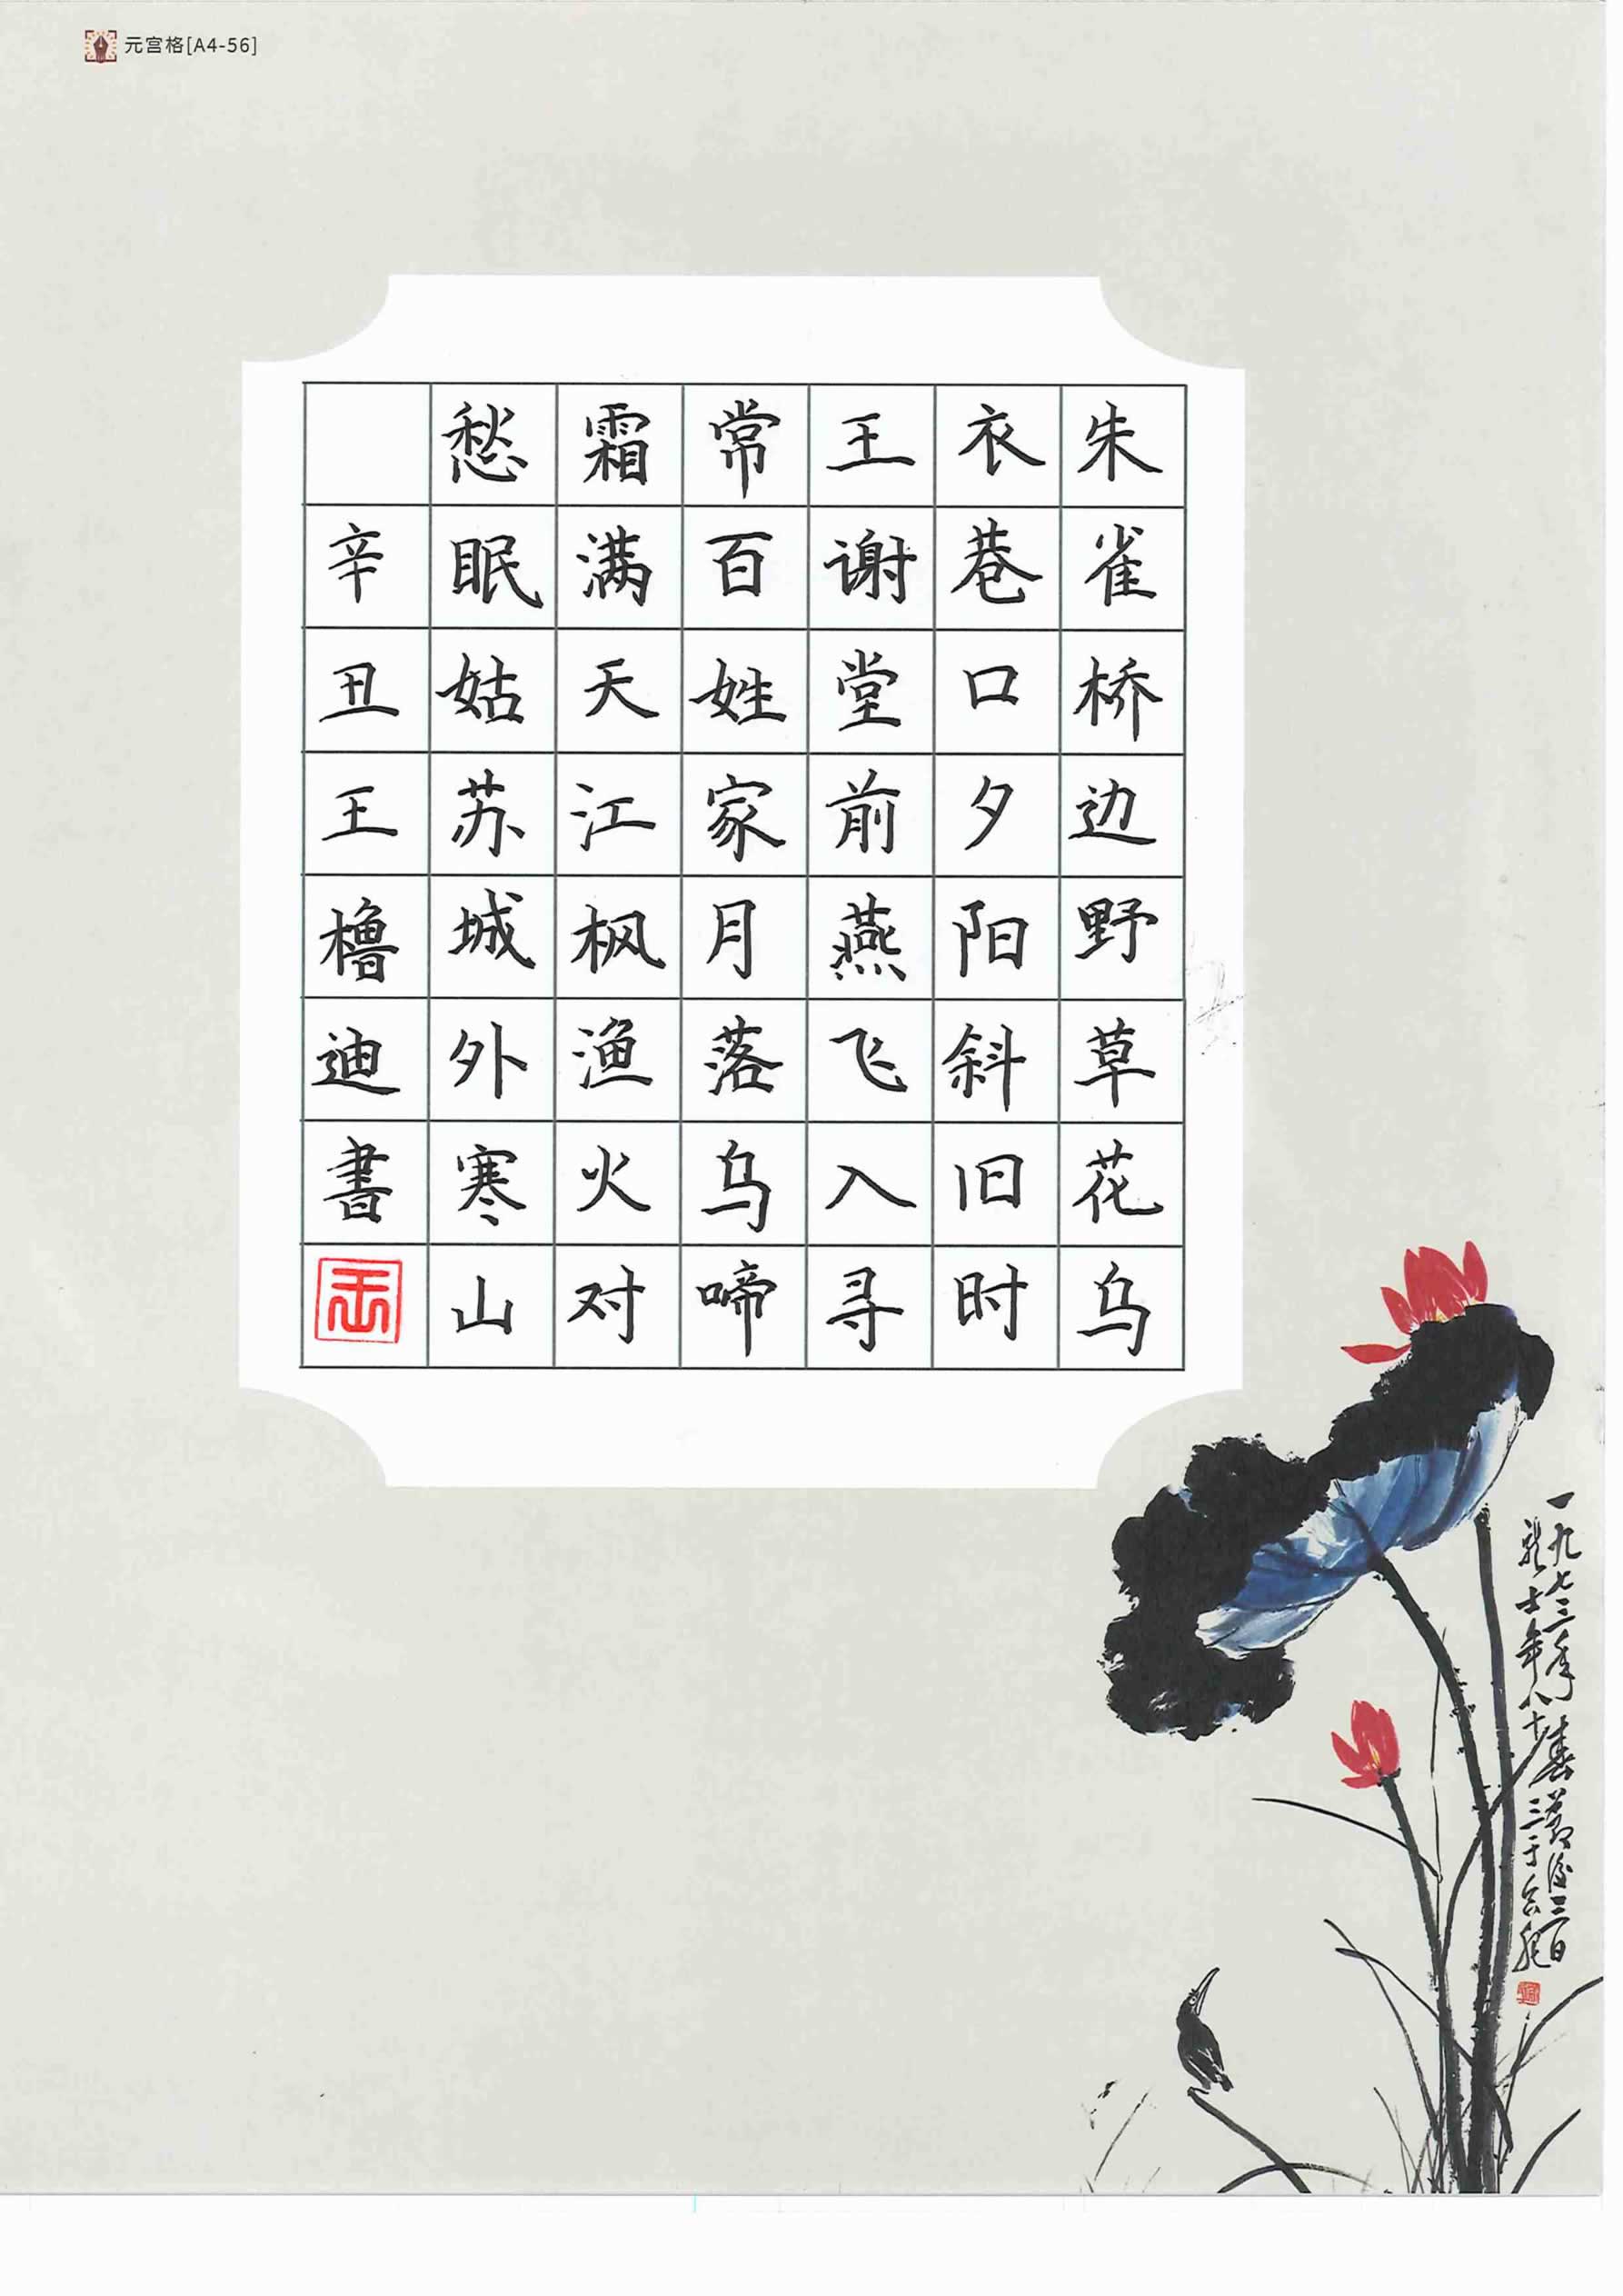 元宫格[A4-56]
朱雀桥边野草花乌
衣巷口夕阳斜旧时
王谢堂前燕飞入寻
常百姓家月落乌啼
霜满天江枫渔火对
愁眠姑苏城外寒山
辛丑王橹迪書
王
一九七三年春暮后三百
年八十三于合肥